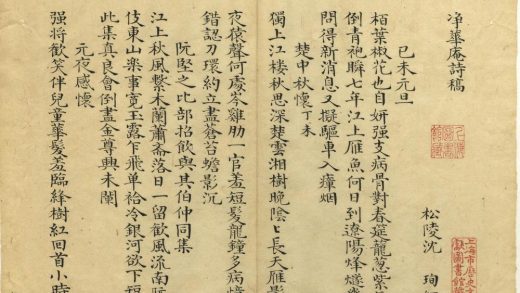 净華庵詩稿
松陵沈珣
己未元旦
栢葉椒花也自妍强支病骨對春筵蘢葱紫
倒青袍瞬七年江上雁魚何日到遼陽烽燧
問得新消息又擬驅車入瘴烟
楚中秋懷丁未
獨上江樓秋思深楚雲湘樹晚陰〻長天雁影
夜猿聲何處岑雞肋一官羞短髮龍鐘多病憶
錯認刀環約立盡蒼苔蟾影沉
阮堅之比部招飲與其伯仲同集
江上秋風繫木蘭蕭斋落日一留歡風流南阮
伎東山樂事寛玉露乍飛单袷冷銀河欲下短
此集真良會倒盡金尊興未闌
元夜感懷
强将歡笑伴兒童華髮羞臨絳樹紅回首小時
上海市歷史文
獻圖書館藏